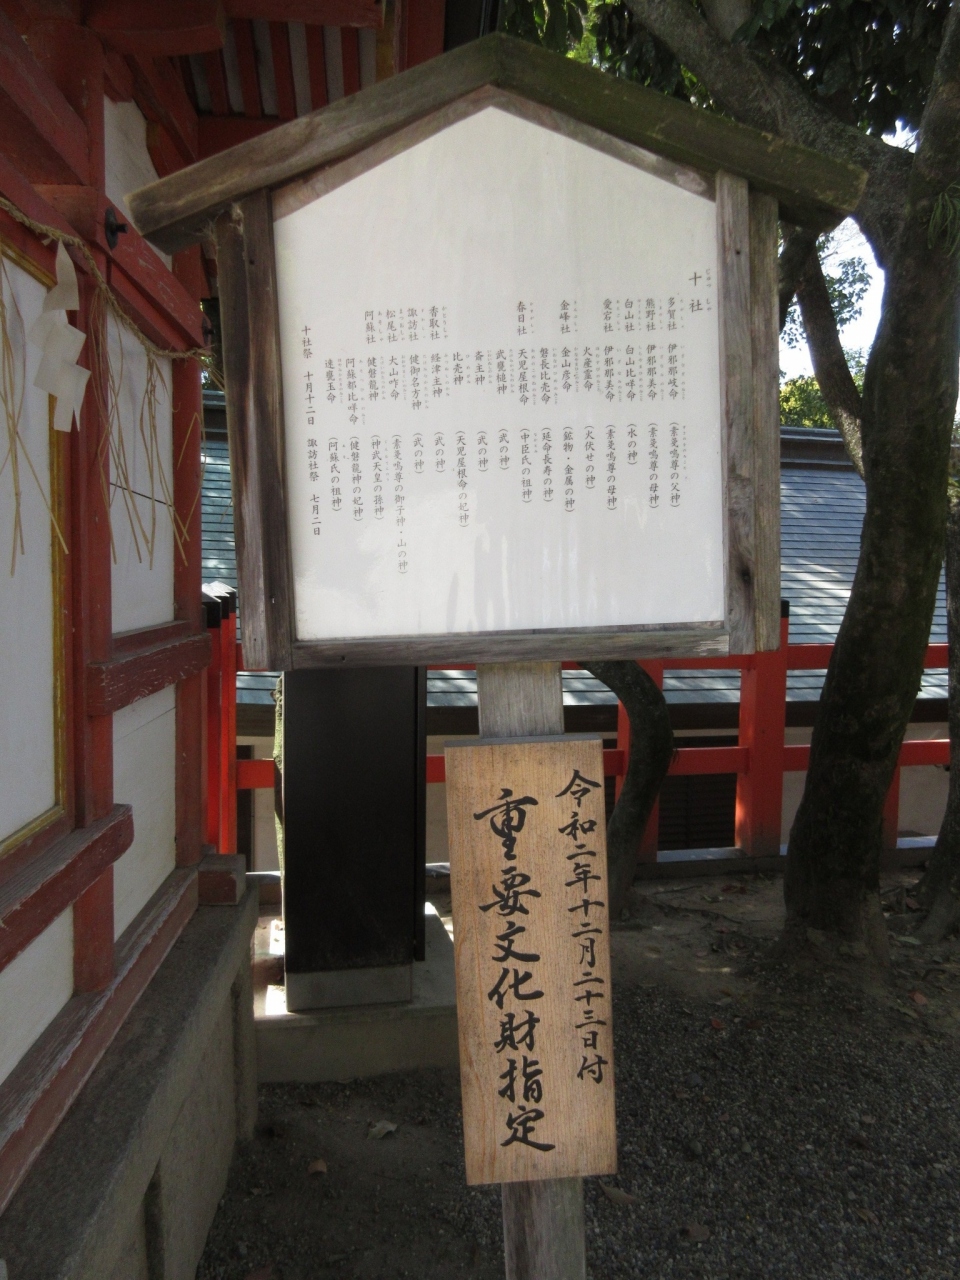 十社
多賀社 伊邪那岐命 (素戔嗚尊の父神)
熊野社 伊邪那美命 (素戔嗚尊の母神)
白山社 白山比咩命 (水の神)
愛宕社 伊邪那美命 (素戔嗚尊の母神)
火産霊命 (火伏せの神)
金峰社 金山彦命 (鉱物・金属の神)
磐長比売命 (延命長寿の神)
春日社 天児屋根命 (中臣氏の祖神)
武甕槌神 (武の神)
斎主神 (武の神)
比売神 (天児屋根命の妃神)
香取社 経津主神 (武の神)
諏訪社 健御名方神 (武の神)
松尾社 大山咋命 (素戔嗚尊の御子神・山の神)
阿蘇社 健磐龍神 (神武天皇の孫神)
阿蘇都比咩命 (健磐龍神の妃神)
速甕玉命 (阿蘇氏の祖神)
十社祭 十月十二日 諏訪社祭 七月二日
令和二年十二月二十三日付
重要文化財指定